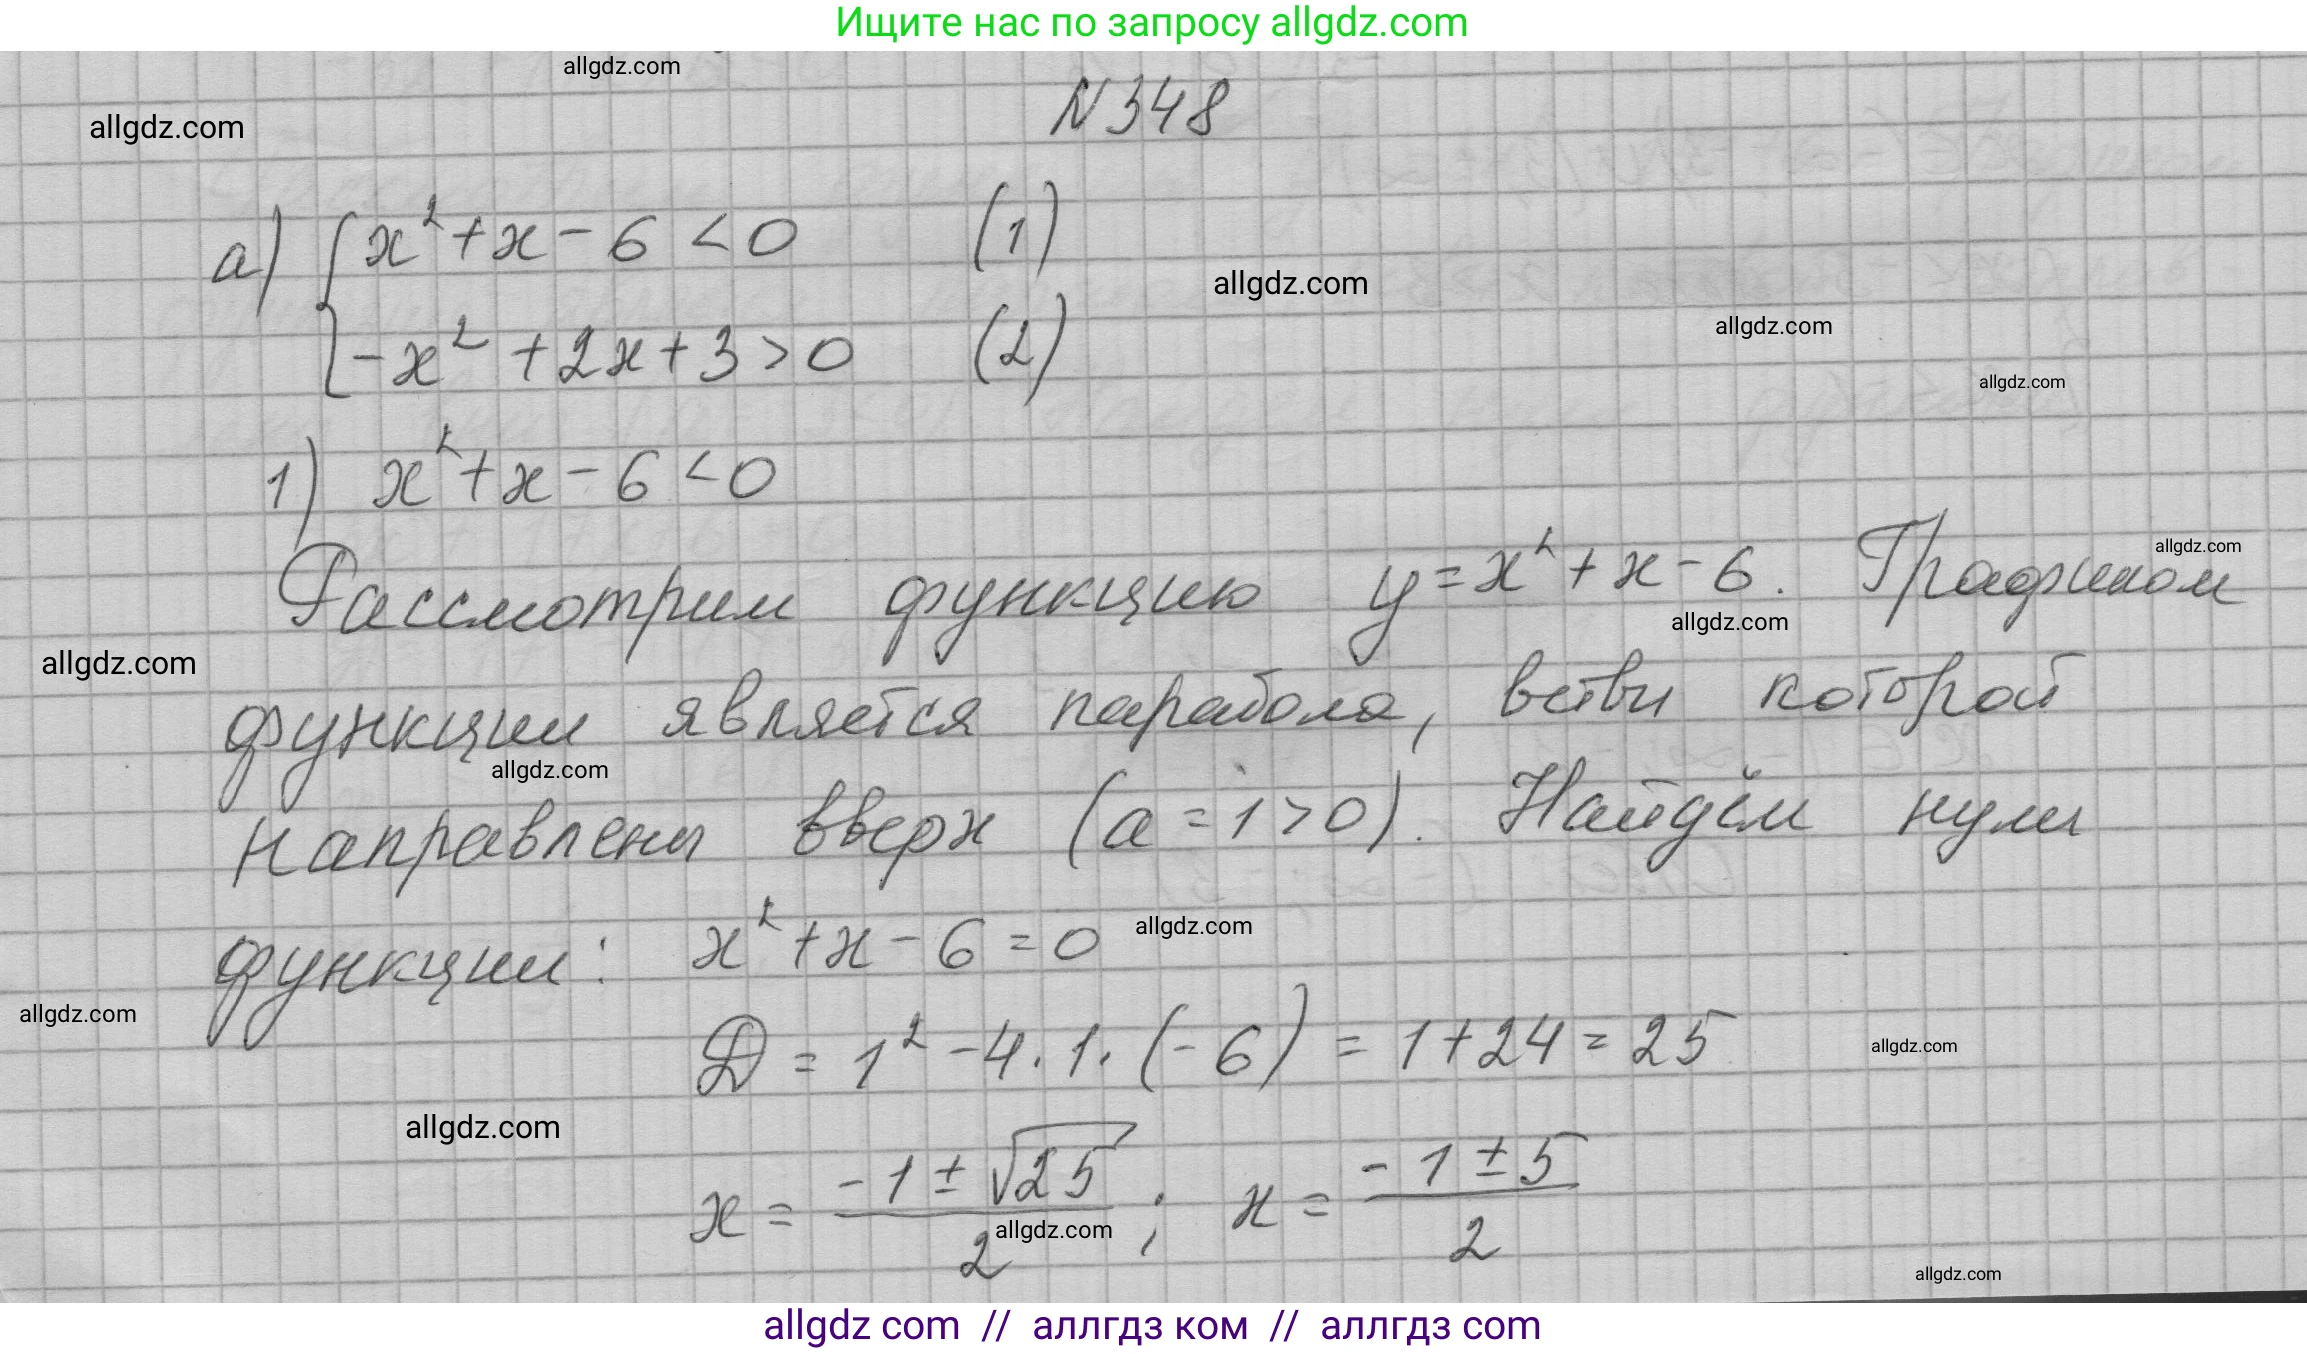 Ищите нас по запросу allgdz.com
allgdz.com
№348
allgdz.com
а) { x² + x - 6 < 0 (1)
allgdz.com
allgdz.com
-x² + 2x + 3 > 0 (2)
allgdz.com
1) x² + x - 6 < 0
allgdz.com
Рассмотрим функцию y = x² + x - 6. Графиком
allgdz.com
allgdz.com
функции является парабола, ветви которой
allgdz.com
направлены вверх (a = 1 > 0). Найдём нули
функции: x² + x - 6 = 0
allgdz.com
allgdz.com
D = 1² - 4 · 1 · (-6) = 1 + 24 = 25
allgdz.com
allgdz.com
x = (-1 ± √25)/2 ; x = (-1 ± 5)/2
allgdz.com
allgdz.com
allgdz com // аллгдз ком // аллгдз com